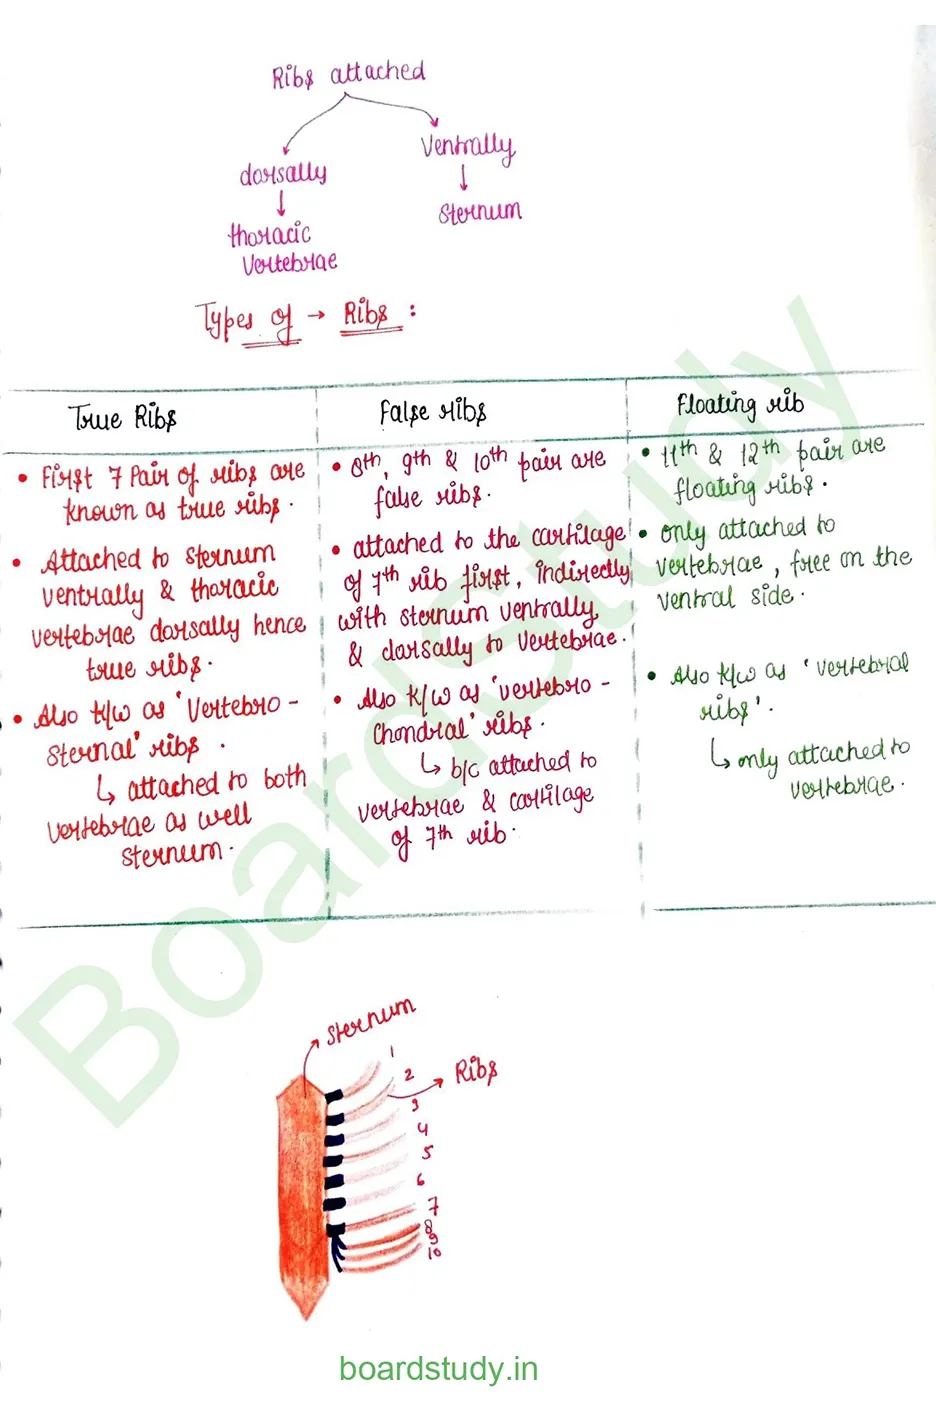 Ribs attached
dorsally
Ventrally
thoracic
vertebrae
Sternum
Types of → Ribs :
True Ribs
• First 7 Pair of ribs are
known as true ribs.
• Attached to sternum
ventrally & thoracic
vertebrae dorsally hence
true ribs.
• Also k/w as 'Vertebro -
Sternal' ribs .
↳ attached to both
vertebrae as well
sternum.
False ribs
• 8th, 9th & 10th pair are
false ribs.
• attached to the cartilage
of 7th rib first, indirectly
with sternum ventrally
& dorsally to vertebrae.
• Also k/w as 'vertebro -
Chondral' ribs.
↳ b/c attached to
vertebrae & cartilage
of 7th rib.
Floating rib
• 11th & 12th pair are
floating ribs.
• only attached to
vertebrae, free on the
ventral side.
• Also k/w as 'vertebral
ribs'.
↳ only attached to
vertebrae.
BoardStudy
Sternum
Ribs
1
2
3
4
5
6
7
8
9
10
boardstudy.in